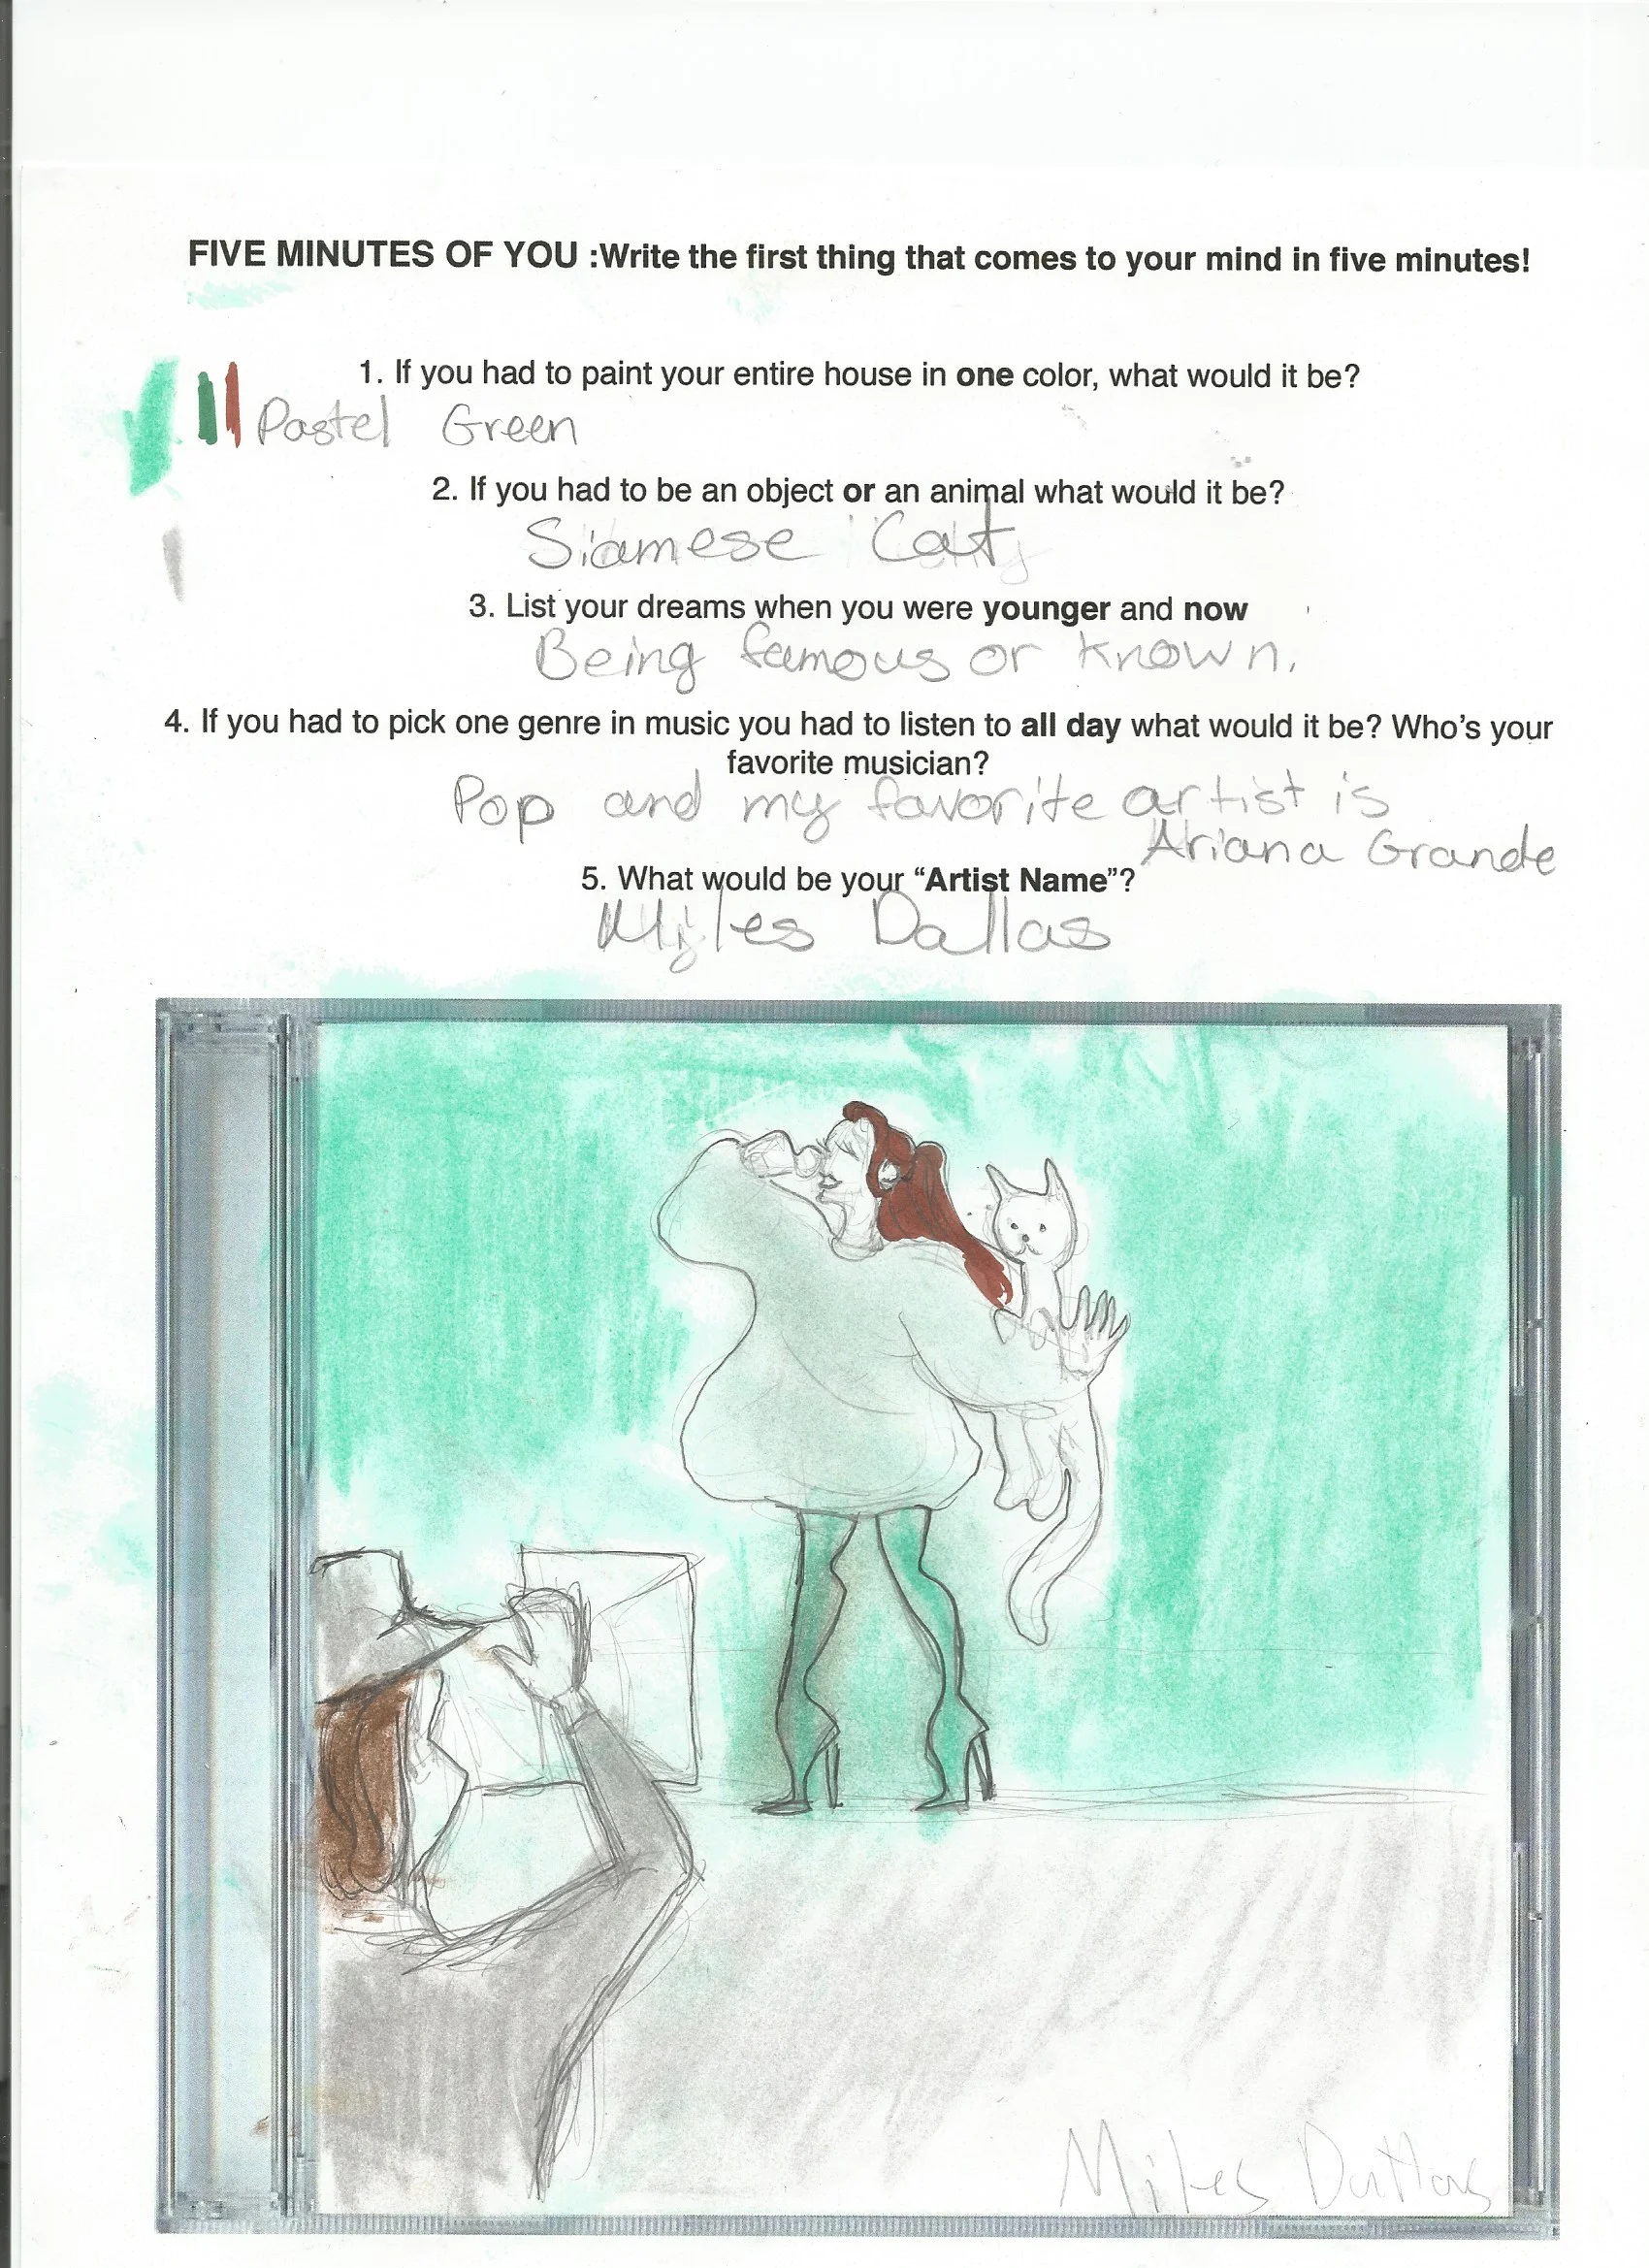 FIVE MINUTES OF YOU :Write the first thing that comes to your mind in five minutes!
1. If you had to paint your entire house in one color, what would it be?
Pastel Green
2. If you had to be an object or an animal what would it be?
Siamese Cat
3. List your dreams when you were younger and now
Being famous or known.
4. If you had to pick one genre in music you had to listen to all day what would it be? Who's your
favorite musician?
Pop and my favorite artist is
Ariana Grande
5. What would be your “Artist Name”?
Miles Dallas
Miles Dallas